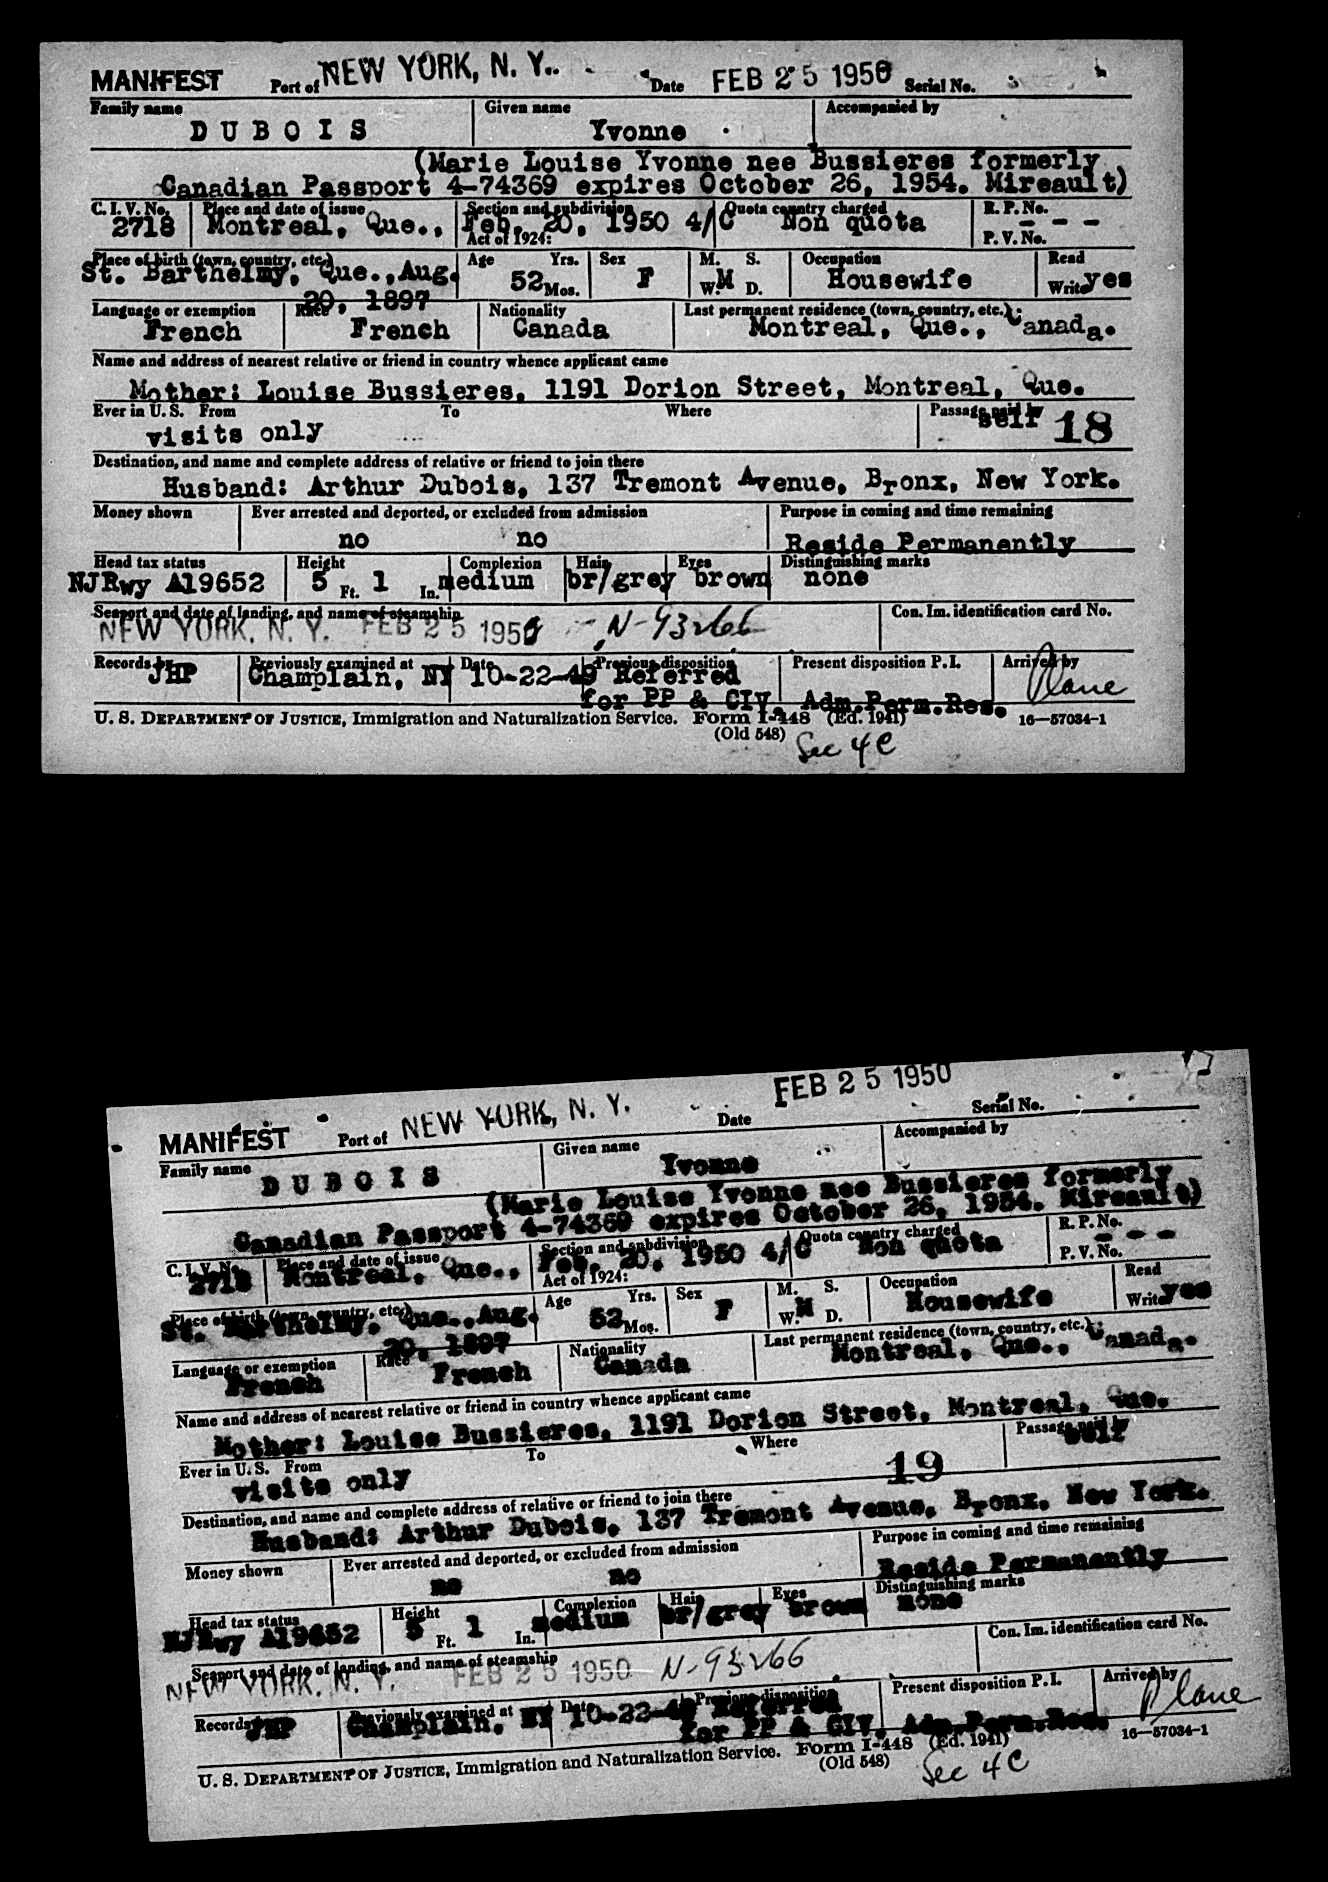 MANIFEST Port of NEW YORK, N. Y. Date FEB 25 1950 Serial No.
Family name Given name Accompanied by
DUBOIS Yvonne
(Marie Louise Yvonne nee Bussieres formerly
Canadian Passport 4-74369 expires October 26, 1954. Mireault)
C. I. V. No. Place and date of issue Section and subdivision Quota country charged R. P. No.
2718 Montreal, Que., Feb. 20, 1950 4/C Non quota - - -
Act of 1924: P. V. No.
Place of birth (town, country, etc.) Age Yrs. Sex M. S. Occupation Read
St. Barthelmy, Que., Aug. 52 Mos. F W. M D. Housewife Write yes
20, 1897
Language or exemption Race Nationality Last permanent residence (town, country, etc.)
French French Canada Montreal, Que., Canada.
Name and address of nearest relative or friend in country whence applicant came
Mother: Louise Bussieres, 1191 Dorion Street, Montreal, Que.
Ever in U. S. From To Where Passage paid by
visits only self 18
Destination, and name and complete address of relative or friend to join there
Husband: Arthur Dubois, 137 Tremont Avenue, Bronx, New York.
Money shown Ever arrested and deported, or excluded from admission Purpose in coming and time remaining
no no Reside Permanently
Head tax status Height Complexion Hair Eyes Distinguishing marks
NJRwy A19652 5 Ft. 1 In. medium br/grey brown none
Seaport and date of landing, and name of steamship Con. Im. identification card No.
NEW YORK, N. Y. FEB 25 1950 N-93266
Records by Previously examined at Date Previous disposition Present disposition P. I. Arrived by
JHP Champlain, NY 10-22-49 Referred Plane
for PP & CIV. Adm.Perm.Res.
U. S. DEPARTMENT OF JUSTICE, Immigration and Naturalization Service. Form I-448 (Ed. 1941) 16—57034-1
(Old 548)
Sec 4C
FEB 25 1950
MANIFEST Port of NEW YORK, N. Y. Date Serial No.
Family name Given name Accompanied by
DUBOIS Yvonne
(Marie Louise Yvonne nee Bussieres formerly
Canadian Passport 4-74369 expires October 26, 1954. Mireault)
C. I. V. No. Place and date of issue Section and subdivision Quota country charged R. P. No.
2718 Montreal, Que., Feb. 20, 1950 4/C Non quota - - -
Act of 1924: P. V. No.
Place of birth (town, country, etc.) Age Yrs. Sex M. S. Occupation Read
St. Barthelmy, Que., Aug. 52 Mos. F W. M D. Housewife Write yes
20, 1897
Language or exemption Race Nationality Last permanent residence (town, country, etc.)
French French Canada Montreal, Que., Canada.
Name and address of nearest relative or friend in country whence applicant came
Mother: Louise Bussieres, 1191 Dorion Street, Montreal, Que.
Ever in U. S. From To Where Passage paid by
visits only 19 self
Destination, and name and complete address of relative or friend to join there
Husband: Arthur Dubois, 137 Tremont Avenue, Bronx, New York.
Money shown Ever arrested and deported, or excluded from admission Purpose in coming and time remaining
no no Reside Permanently
Head tax status Height Complexion Hair Eyes Distinguishing marks
NJRwy A19652 5 Ft. 1 In. medium br/grey brown none
Seaport and date of landing, and name of steamship Con. Im. identification card No.
NEW YORK, N. Y. FEB 25 1950 N-93266
Records by Previously examined at Date Previous disposition Present disposition P. I. Arrived by
JHP Champlain, NY 10-22-49 Referred Plane
for PP & CIV. Adm.Perm.Res.
U. S. DEPARTMENT OF JUSTICE, Immigration and Naturalization Service. Form I-448 (Ed. 1941) 16—57034-1
(Old 548)
Sec 4C